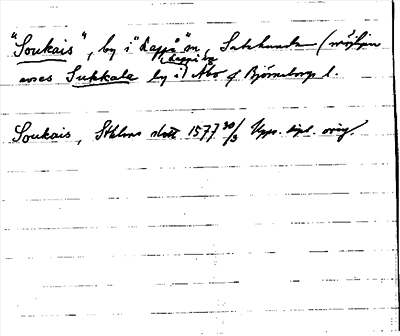 "Soukais", by i "Kappo" sn, Satakunda (möjligen
avses Sukkala by i Åbo o Björneborgs l.
Soukais, Sthlms slott 1577 30/3 Upps. dipl. orig.